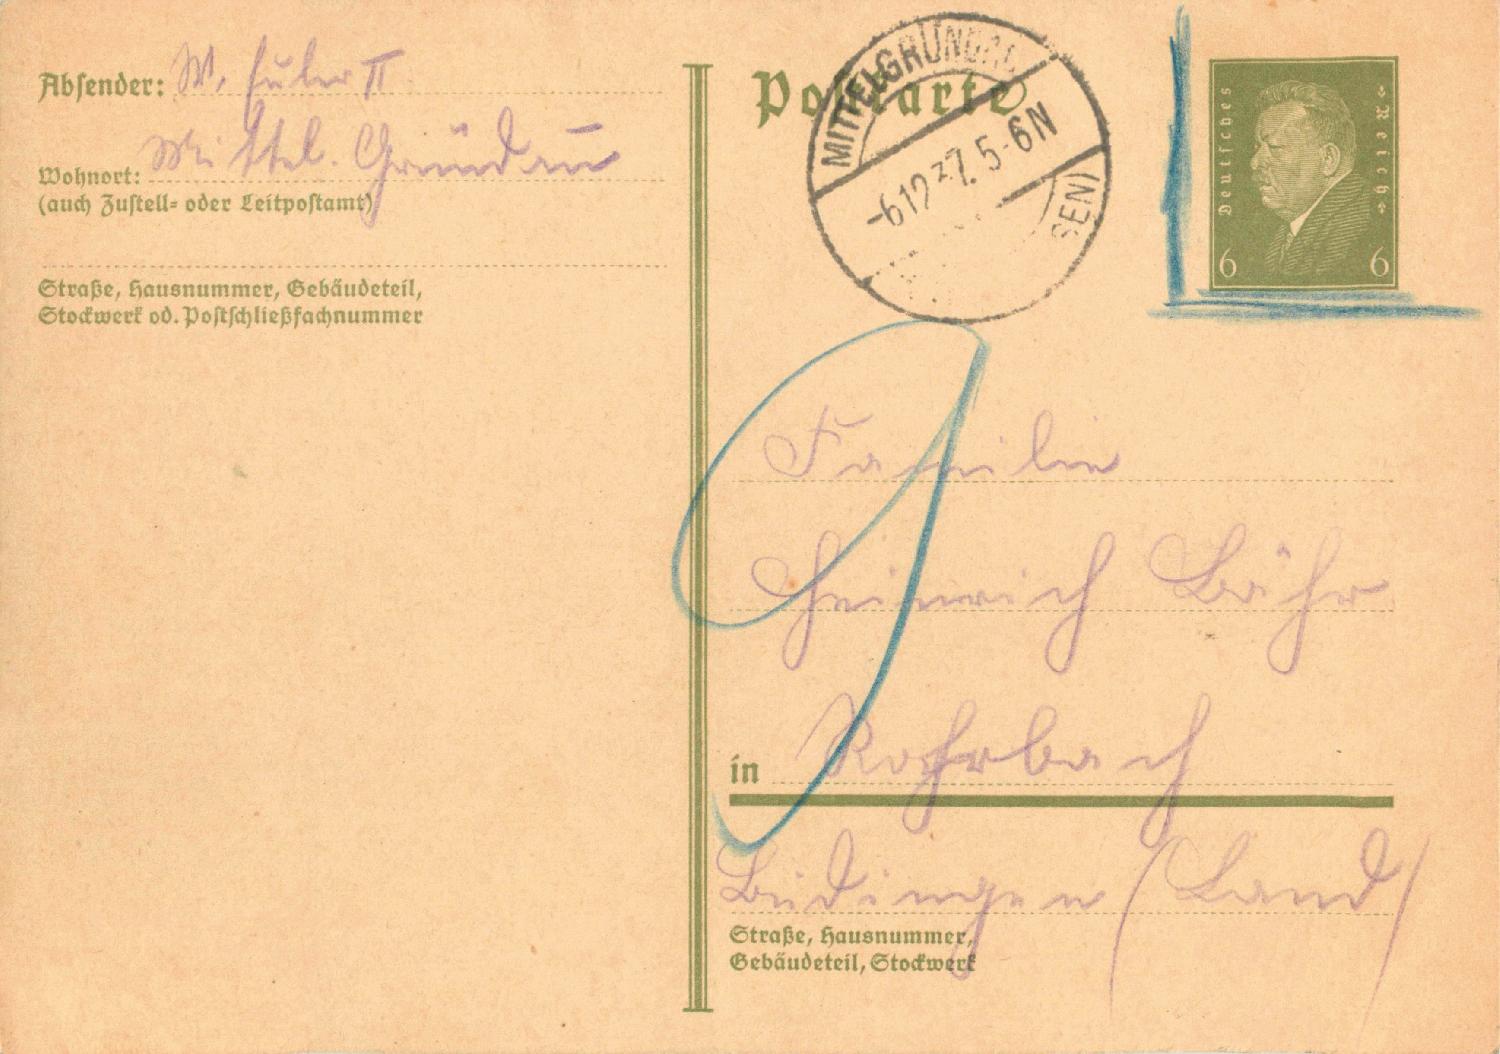 Absender: W. Euler II
Mittel. Gründau
Wohnort:
(auch Zustell- oder Leitpostamt)
Straße, Hausnummer, Gebäudeteil,
Stockwerk od. Postschließfachnummer
Postkarte
MITTELGRÜNDAU
5-6N
SEN)
Deutsches Reich
6 6
9
Familie
Heinrich Bähr
in Rohrbach
Büdingen (Land)
Straße, Hausnummer,
Gebäudeteil, Stockwerk